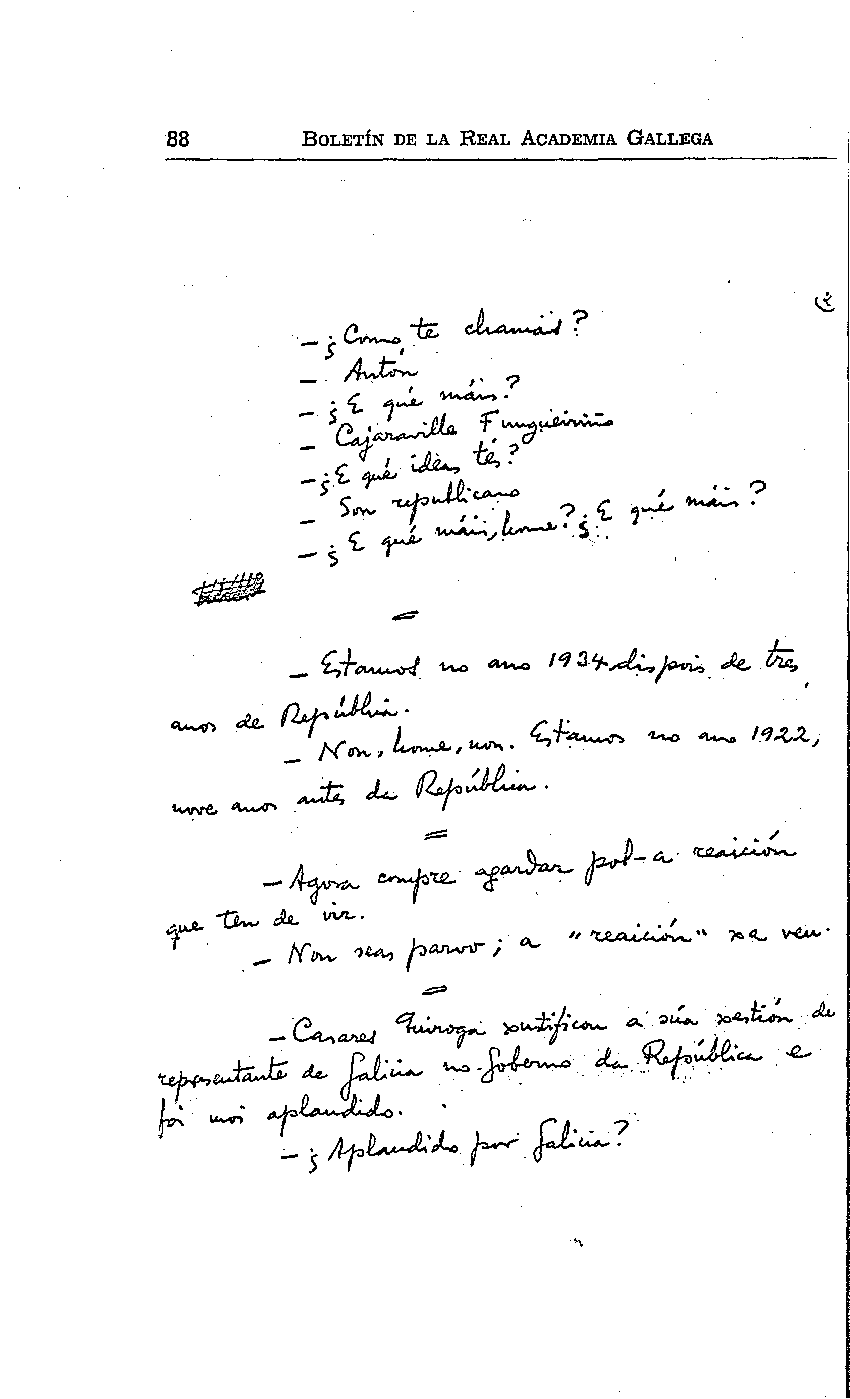 88 BOLETÍN DE LA REAL ACADEMIA GALLEGA
— ¿Como te chamás?
— Antón
— ¿E qué máis?
— Cajaraville Fungueiriño
— ¿E qué ideas tés?
— Son republicano
— ¿E qué máis, home? ¿E qué máis?
=
— Estamos no ano 1934 dispois de tres
anos de República.
— Non, home, non. Estamos no ano 1922,
nove anos antes da República.
=
— Agora compre agardar pol-a reaición
que ten de vir.
— Non seas parvo; a "reaición" xa veu.
=
— Casares Quiroga xustificou a súa xestión de
representante de Galicia no Goberno da República e
foi moi aplaudido.
— ¿Aplaudido por Galicia?